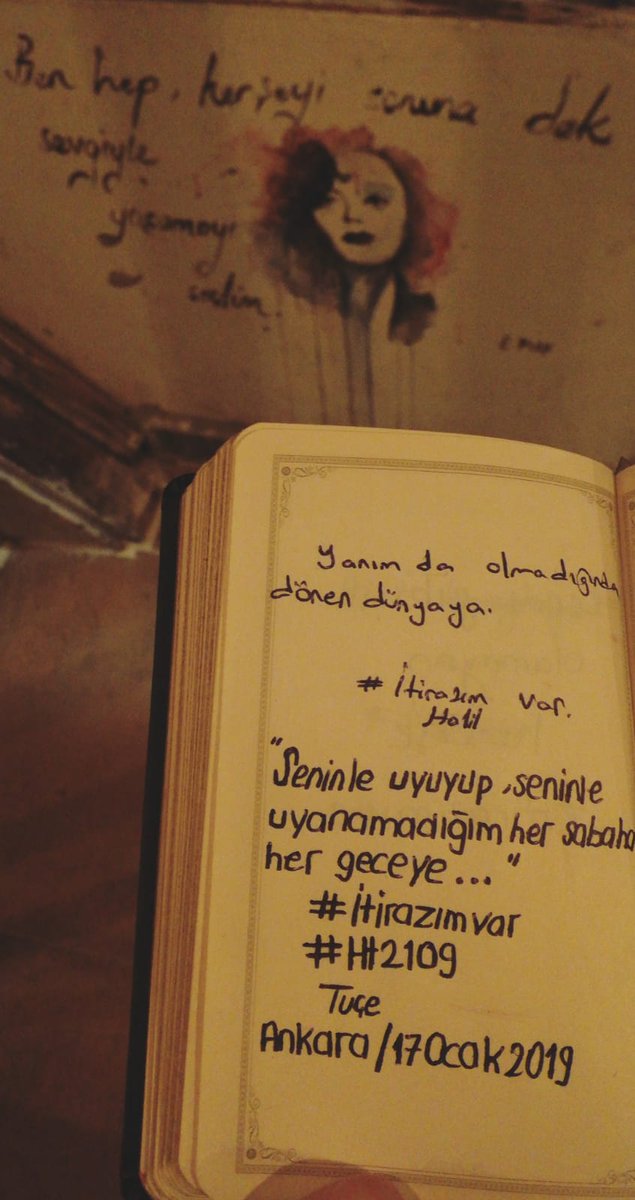 Ben hep, herşeyi sonuna dek
sevgiyle
yaşamayı
Yanım da olmadığında
dönen dünyaya.
# İtirazım var.
Halil
"Seninle uyuyup, seninle
uyanamadığım her sabaha
her geceye..."
#İtirazımvar
#Ht2109
Tuçe
Ankara/17Ocak2019